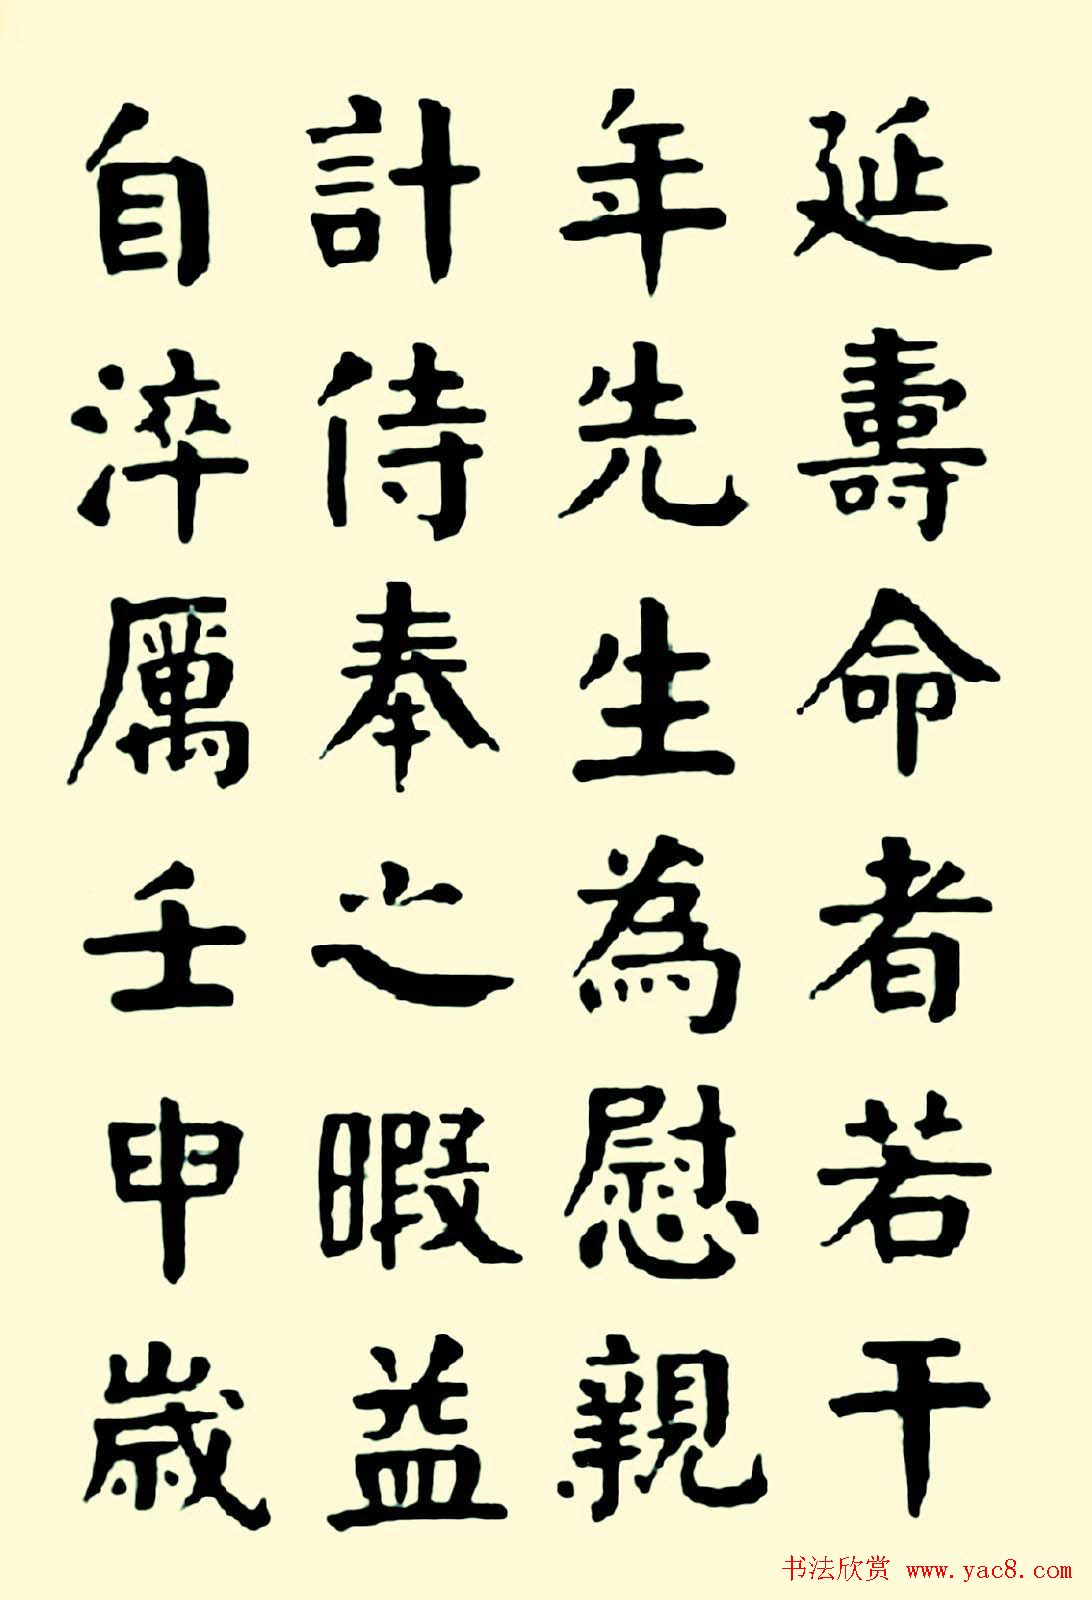 延壽命者若干
年先生為慰親
計侍奉之暇益
自淬厲壬申歲
书法欣赏 www.yac8.com